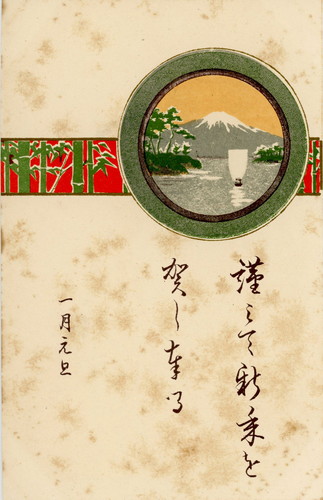 謹みて新年を
賀し奉る
一月元旦